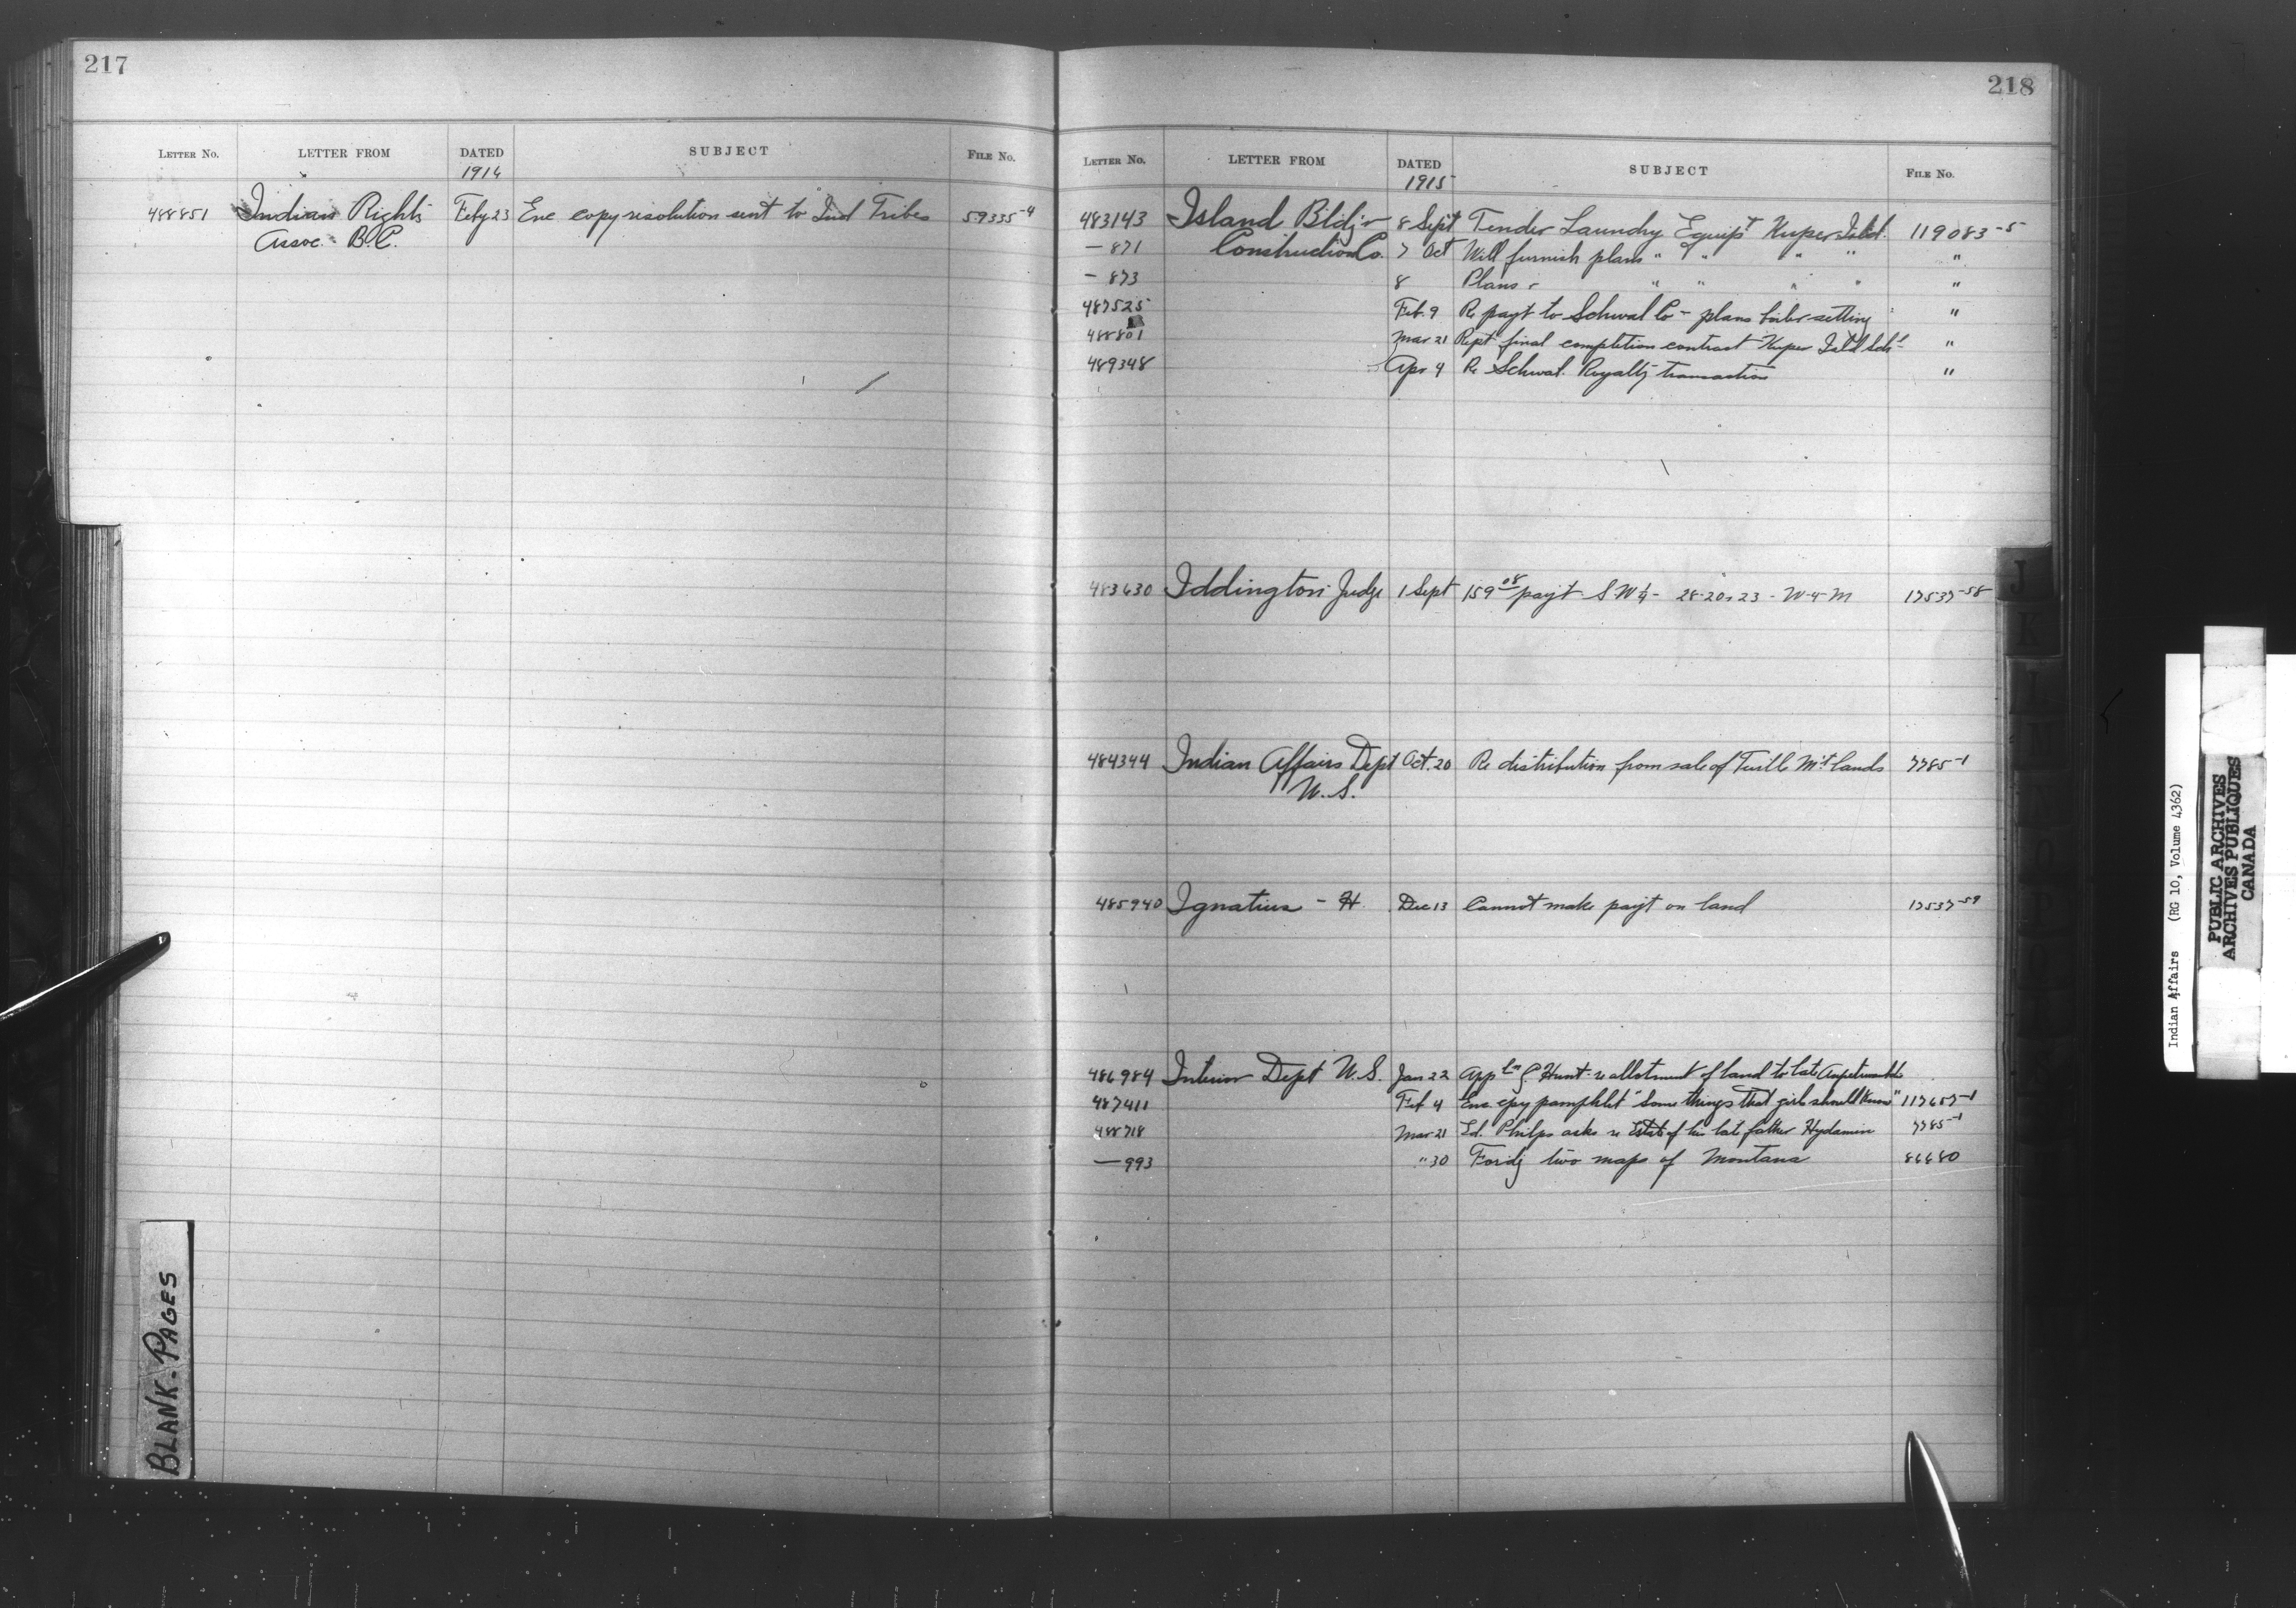 217
LETTER NO. LETTER FROM DATED SUBJECT FILE NO.
1914
488851 Indian Rights Feby 23 Enc copy resolution sent to Ind Tribes 59335-4
Assoc. B.C.
BLANK-PAGES
218
LETTER NO. LETTER FROM DATED SUBJECT FILE NO.
1915
483143 Island Bldg 8 Sept Tender Laundry Equipt Kuper Isld. 119083-5
— 871 Construction Co. 7 Oct Will furnish plans " " " " "
— 873 8 Plans " " " " "
487525 Feb. 9 Re payt to Schwal Co - plans boiler setting "
488801 Mar 21 Rept final completion contract Kuper Isld Schl "
489348 Apr 4 Re Schwal. Royalty transaction "
483630 Iddington Judge 1 Sept 159 08 payt S.W¼- 28-20-23-W-4-M 17537-58
484344 Indian Affairs Dept Oct. 20 Re distribution from sale of Turtle Mt lands 7785-1
U.S.
485940 Ignatius - H. Dec 13 Cannot make payt on land 17537-59
486984 Interior Dept U.S. Jan 22 Hunt re allotment of land to late
487411 Feb 4 Enc. cpy pamphlet "Some things that girls should know" 117657-1
488718 Mar 21 Ed. Philps asks re Estate of his late father 7785-1
— 993 " 30 Fordg two maps of Montana 86680
J
K
L
Indian Affairs (RG 10, Volume 4362)
PUBLIC ARCHIVES
ARCHIVES PUBLIQUES
CANADA